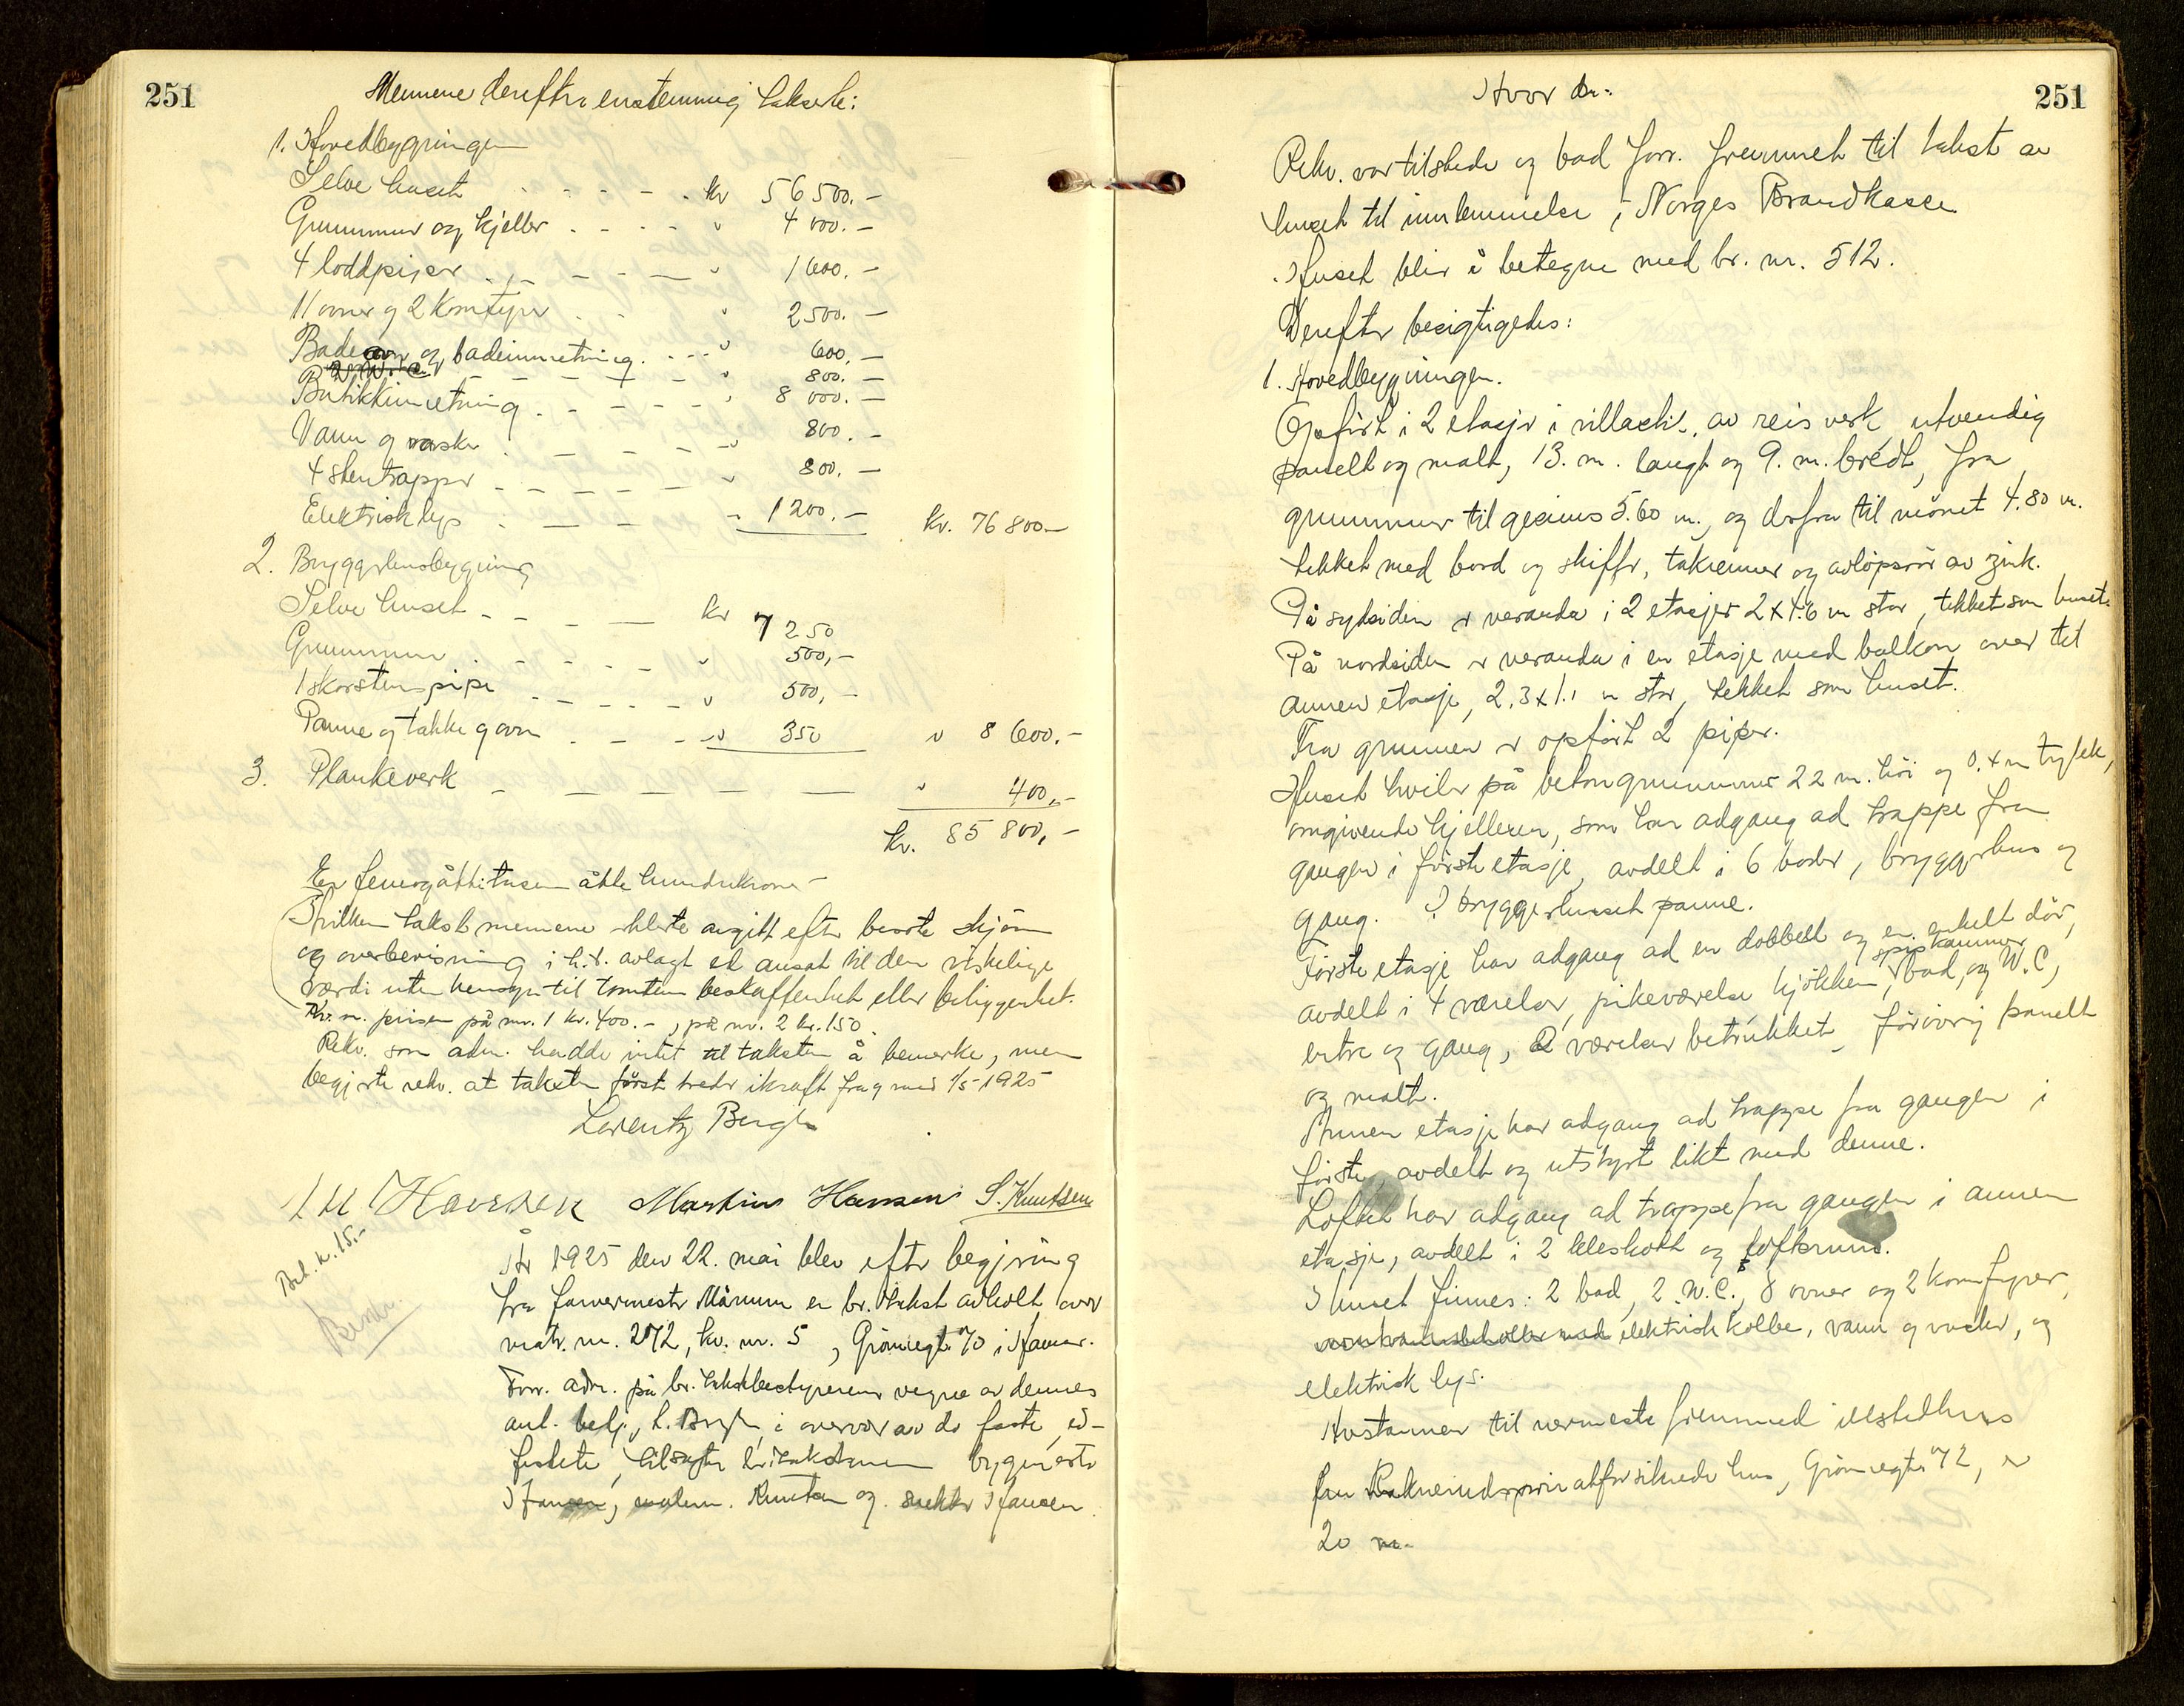 251
Mennene derefter enstemmig takserte:
1. Hovedbygningen
Selve huset - - - - . kr 56 500. -
Grunnmur og kjeller - - - - " 4 000. -
4 loddpiper - - - - " 1 600. -
11 ovner og 2 komfyrer " 2 500. -
Badeovn og badeinnretning. - - - " 600. -
2 W.C. - - - - " 800. -
Butikkinnretning - - - - " 8 000. -
Vann og vaske - - - - " 800. -
4 stentrapper - - - - " 800. -
Elektrisk lys - - - - 1 200. - kr. 76 800. -
2. Bryggerhusbygning
Selve huset - - - - kr 7 250
Grunnmur - - - - " 500, -
1 skorstenspipe - - - - " 500, -
Panne og takke og ovn - - - " 350 " 8 600. -
3. Plankeverk - - - - " 400, -
kr. 85 800, -
Er femogåttitusen åtte hundrekroner -
Hvilken takst mennene erklærte avgitt efter beste skjøn
og overbevisning i h.t. avlagt ed ansat til den virkelige
værdi uten hensyn til tomtens beskaffenhet eller beliggenhet.
Kv. m. prisen på nr. 1 kr. 400. - , på nr. 2 kr. 150.
Rekv. som adm. hadde intet til taksten å bemerke, men
begjærte rekv. at taksten først treder ikraft fra og med 1/5 - 1925
Lorentz Bergh
Martin Hansen S. Knutsen
Bet. kr. 15. -
År 1925 den 22. mai blev efter begjæring
fra farvermester Mårum en br. takst avholt over
matr. nr. 272, kv. nr. 5, Grønnegt. 70 i Hamar.
Forr. adm. på br. takstbestyrerens vegne av dennes
aut. betj., L. Bergh, i overvær av de faste, ed-
festete, tilsatte br. takstmenn bygmester
Hansen, malerm. Knutsen og snekker Hansen.
251
Hvor da:
Rekv. var tilstede og bad forr. fremmet til takst av
huset til innlemmelse i Norges Brandkasse
Huset blir å betegne med br. nr. 512.
Derefter besigtigedes:
1. Hovedbygningen.
Opført i 2 etasjer i villastil, av reisverk, utvendig
panelt og malt, 13. m. langt og 9. m. bredt, fra
grunnmur til gesims 5.60 m., og derfra til mønet 4.80 m.
tekket med bord og skiffer, takrenner og avløpsrør av zink.
På sydsiden er veranda i 2 etasjer 2 x 4.6 m stor, tekket som huset.
På nordsiden er veranda i en etasje med balkon over til
annen etasje, 2.3 x 1.1 m stor, tekket som huset.
Fra grunnen er opført 2 piper.
Huset hviler på betongrunnmur 22 m. höi og 0.4 m tykk,
omgivende kjelleren, som har adgang ad trappe fra
gangen i første etasje, avdelt i 6 boder, bryggerhus og
gang. I bryggerhuset panne.
Første etasje har adgang ad en dobbelt og en enkelt dør,
avdelt i 4 værelser, pikeværelse, kjøkken, spiskammer, bad, og W.C,
entre og gang, 2 værelser betrukket, forøvrig panelt
og malt.
Annen etasje har adgang ad trappe fra gangen i
første, avdelt og utstyrt likt med denne.
Loftet har adgang ad trappe fra gangen i annen
etasje, avdelt i 2 kleskott og loftsrum.
I huset finnes: 2 bad, 2 W.C., 8 ovner og 2 komfyrer,
varmtvannsbeholder med elektrisk kolbe, vann og vasker, og
elektrisk lys.
Avstannen til nærmeste fremmed ildstedhus
fru forsikrede hus, Grønnegt. 72, er
20 m.